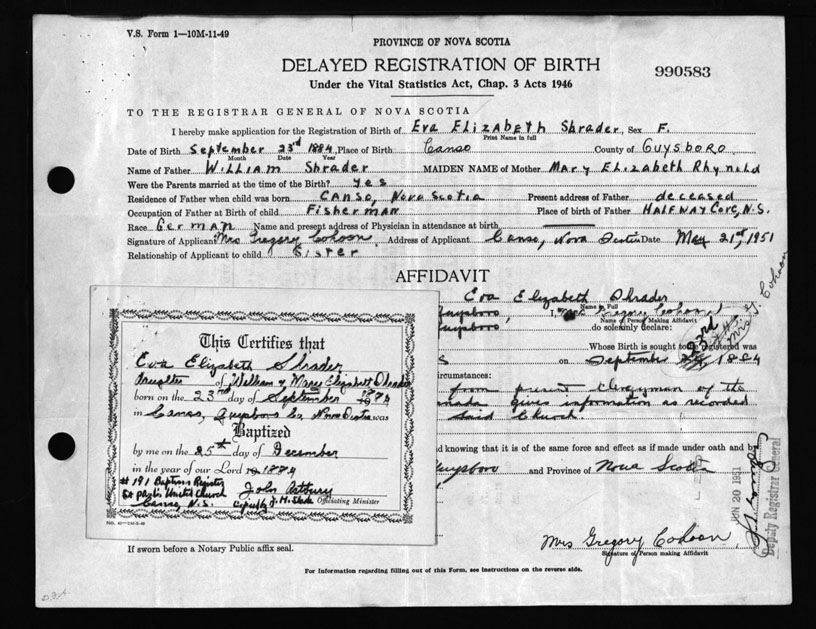 V.S. Form 1—10M-11-49
PROVINCE OF NOVA SCOTIA
DELAYED REGISTRATION OF BIRTH
990583
Under the Vital Statistics Act, Chap. 3 Acts 1946
TO THE REGISTRAR GENERAL OF NOVA SCOTIA
I hereby make application for the Registration of Birth of Eva Elizabeth Shrader, Sex F.
Print Name in full
Date of Birth September 23rd 1884, Place of Birth Canso County of Guysboro
Month Date Year
Name of Father William Shrader MAIDEN NAME of Mother Mary Elizabeth Rhynold
Were the Parents married at the time of the Birth? yes
Residence of Father when child was born Canso, Nova Scotia Present address of Father deceased
Occupation of Father at Birth of child Fisherman Place of birth of Father Halfway Cove, N.S.
Race German Name and present address of Physician in attendance at birth
Signature of Applicant Mrs Gregory Cohoon Address of Applicant Canso, Nova Scotia Date May 21st, 1951
Relationship of Applicant to child Sister
AFFIDAVIT
Eva Elizabeth Shrader
Name in Full
Guysboro, I, Mrs Gregory Cohoon
Name of Person Making Affidavit
Guysboro, do solemnly declare:
Whose Birth is sought to be registered was
on September 1884
23rd
Mrs G. Cohoon
circumstances:
from present Clergyman of the
Canada gives information as recorded
said Church.
and knowing that it is of the same force and effect as if made under oath and by
Guysboro and Province of Nova Scotia
JUN 20 1951
Deputy Registrar General
Mrs Gregory Cohoon
Signature of Person making Affidavit
This Certifies that
Eva Elizabeth Shrader
Daughter of William & Mary Elizabeth Shrader
born on the 23rd day of September 1884
in Canso, Guysboro Co. Nova Scotia was
Baptized
by me on the 25th day of December
in the year of our Lord 1884
# 191 Baptism Register
United Church
Canso N.S.
John Astbury
Officiating Minister
NO. 40—2M-5-49
If sworn before a Notary Public affix seal.
For Information regarding filling out of this Form, see instructions on the reverse side.